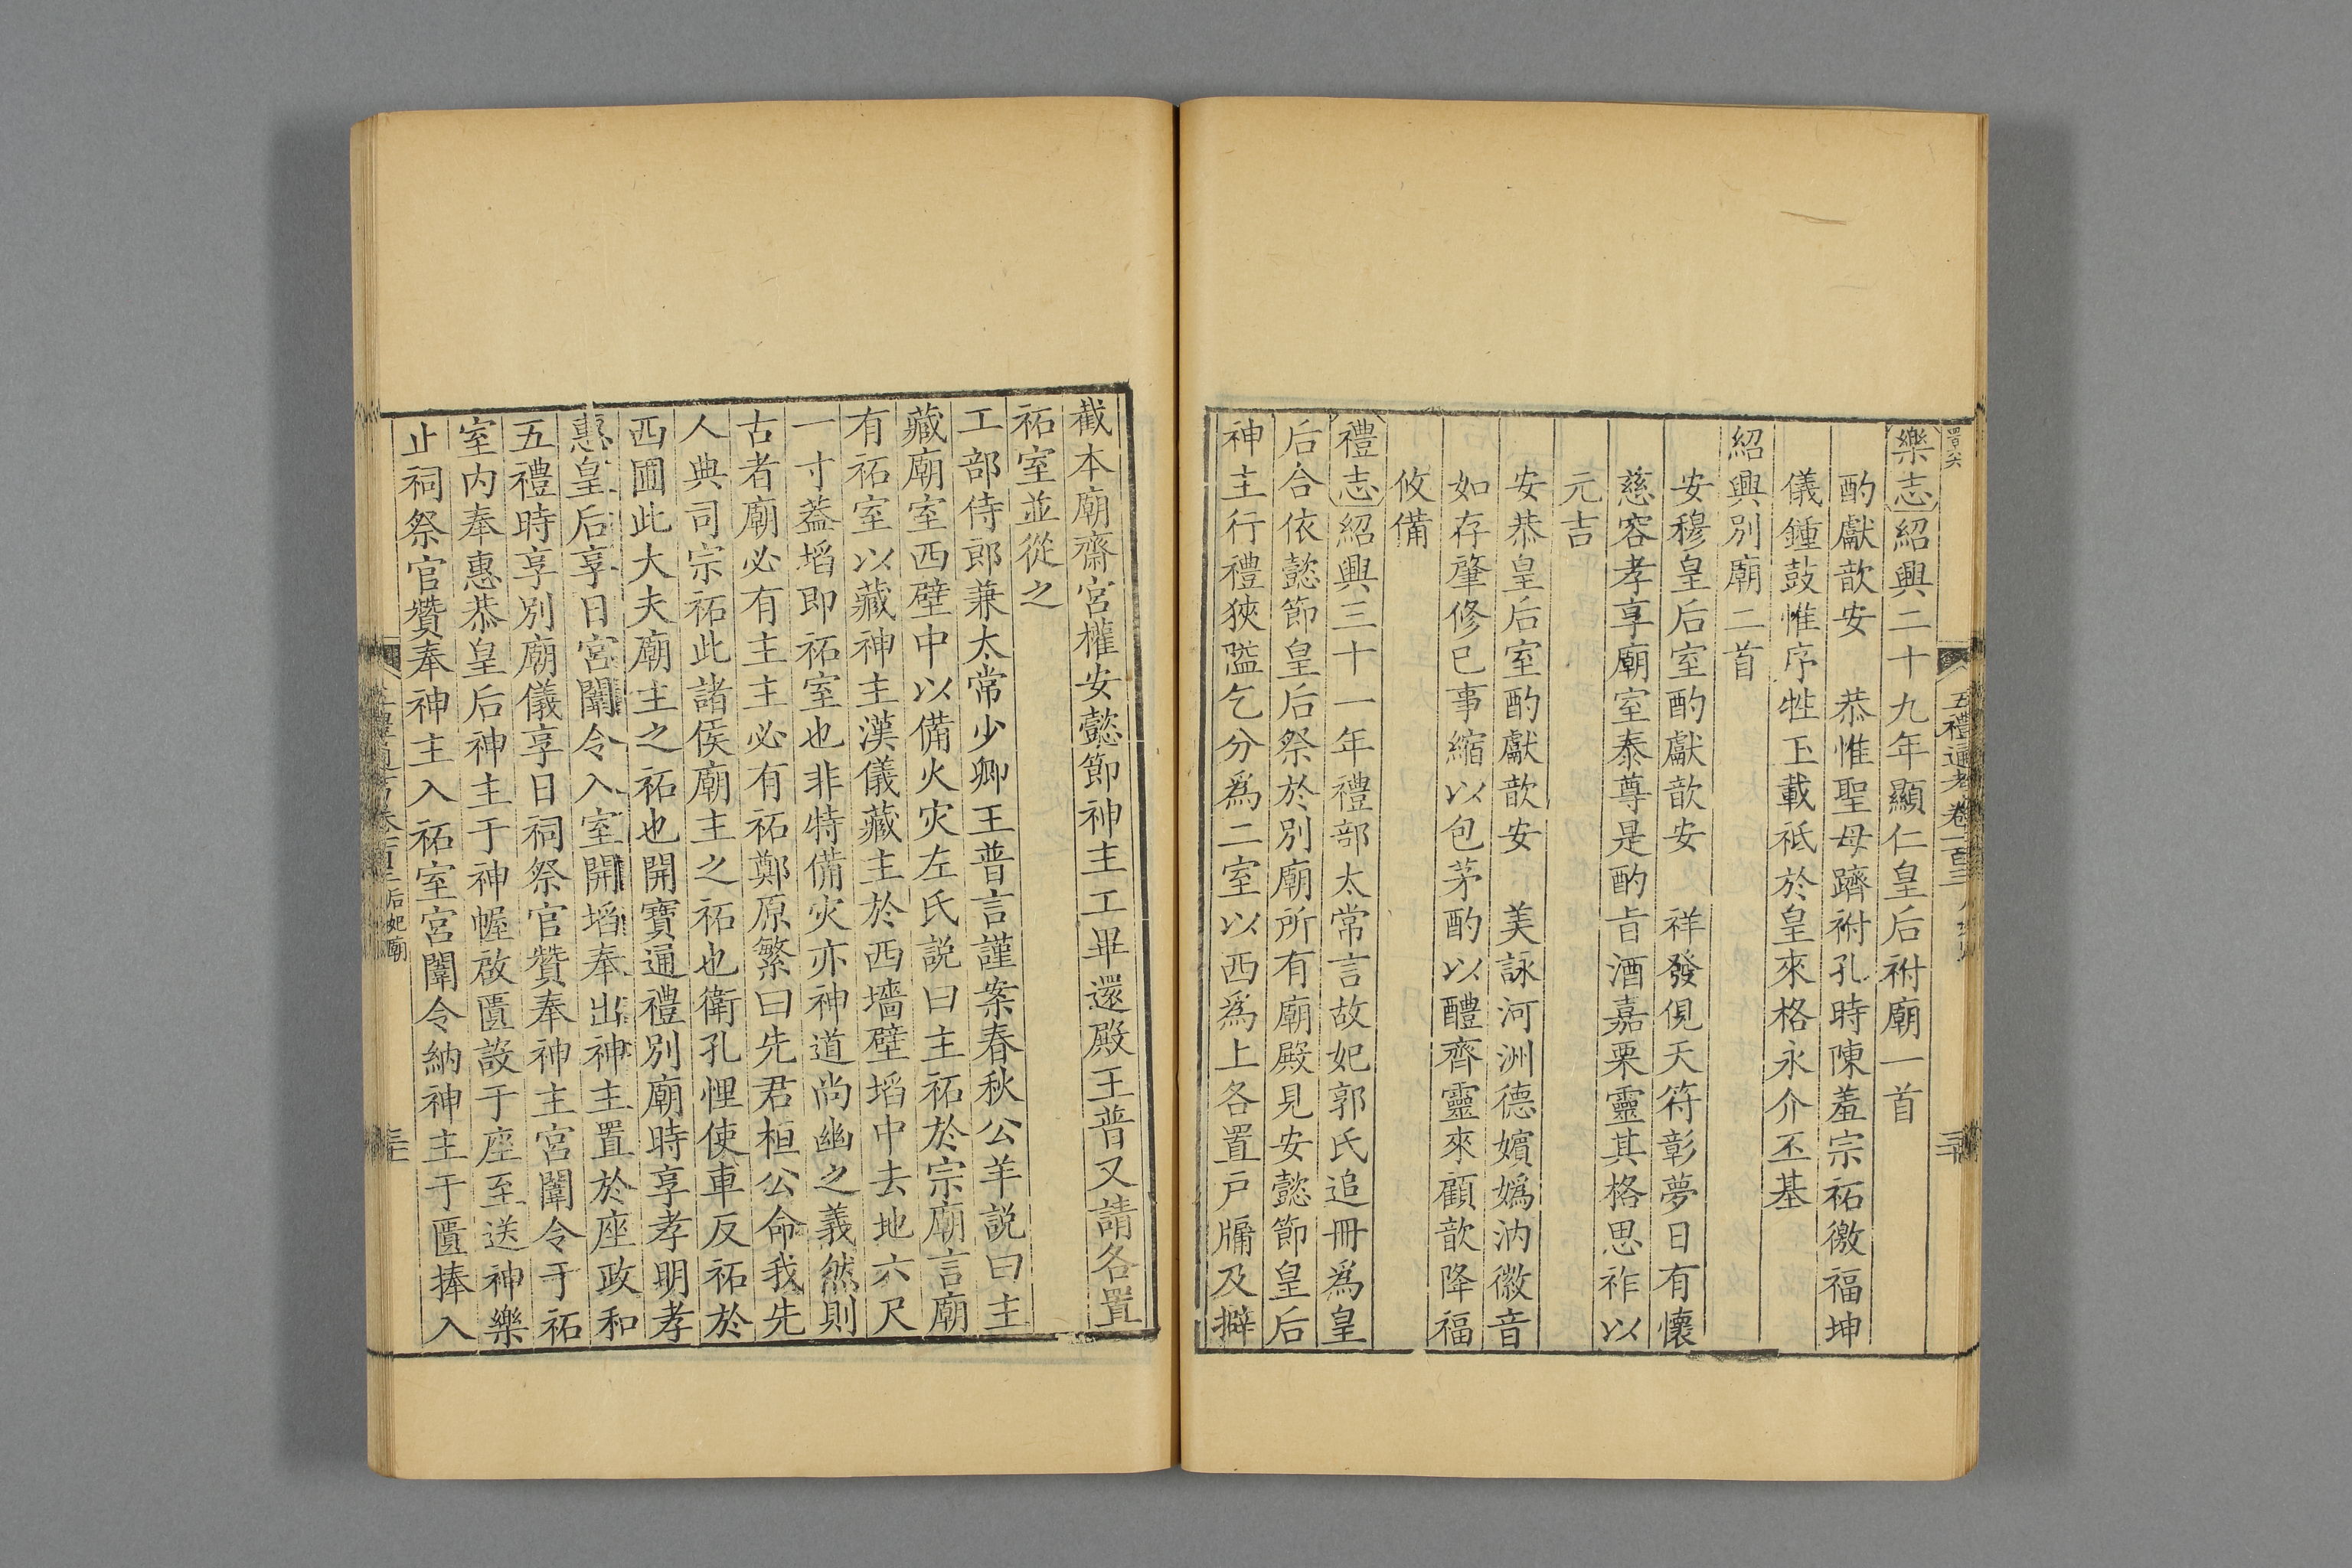 五禮通考卷一百三
樂志紹興二十九年顯仁皇后祔廟一首
酌獻歆安　恭惟聖母躋祔孔時陳羞宗祏徼福坤
儀鍾鼓惟序牲玉載祗於皇來格永介丕基
紹興別廟二首
安穆皇后室酌獻歆安　祥發俔天符彰夢日有懷
慈容孝享廟室泰尊是酌旨酒嘉栗靈其格思祚以
元吉
安恭皇后室酌獻歆安　美詠河洲德嬪嬀汭徽音
如存肇修祀事縮以包茅酌以醴齊靈來顧歆降福
攸備
禮志紹興三十一年禮部太常言故妃郭氏追冊爲皇
后合依懿節皇后祭於別廟所有廟殿見安懿節皇后
神主行禮狹隘乞分爲二室以西爲上各置戶牖及擗
截本廟齋宮權安懿節神主工畢還殿王普又請各置
祏室並從之
工部侍郎兼太常少卿王普言謹案春秋公羊説曰主
藏廟室西壁中以備火灾左氏説曰主祏於宗廟言廟
有祏室以藏神主漢儀藏主於西墻壁埳中去地六尺
一寸葢埳即祏室也非特備灾亦神道尚幽之義然則
古者廟必有主主必有祏鄭原繁曰先君桓公命我先
人典司宗祏此諸侯廟主之祏也衛孔悝使車反祏於
西圃此大夫廟主之祏也開寶通禮別廟時享孝明孝
惠皇后享日宮闈令入室開埳奉出神主置於座政和
五禮時享別廟儀享日祠祭官贊奉神主宮闈令于祏
室内奉惠恭皇后神主于神幄啟匱設于座至送神樂
止祠祭官贊奉神主入祏室宮闈令納神主于匱捧入
后妃廟